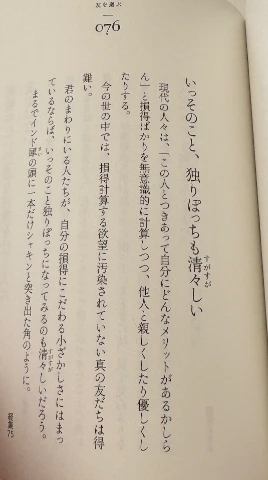 友を選ぶ
076
いっそのこと、独りぼっちも清々しい
すがすが
現代の人々は、「この人とつきあって自分にどんなメリットがあるかしら
ん」と損得ばかりを無意識的に計算しつつ、他人と親しくしたり優しくし
たりする。
今の世の中では、損得計算する欲望に汚染されていない真の友だちは得
難い。
君のまわりにいる人たちが、自分の損得にこだわる小ざかしさにはまっ
ているならば、いっそのこと独りぼっちになってみるのも清々しいだろう。
すがすが
まるでインド犀の頭に一本だけシャキンと突き出た角のように。
経集75